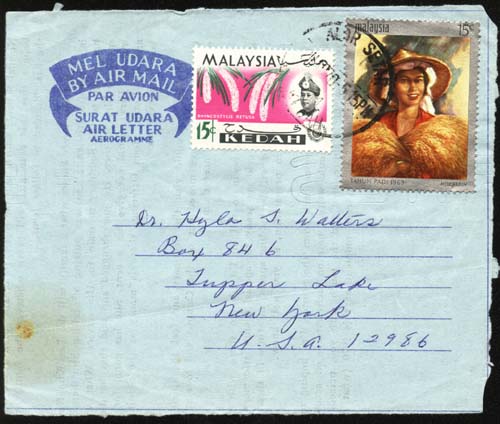 MEL UDARA
BY AIR MAIL
PAR AVION
SURAT UDARA
AIR LETTER
AEROGRAMME
MALAYSIA
RHYNCOSTYLIS RETUSA
15¢
KEDAH
malaysia
15c
TAHUN PADI 1969
ALOR SETAR
Dr. Hyla S. Watters
Box 846
Tupper Lake
New York
U.S.A. 12986